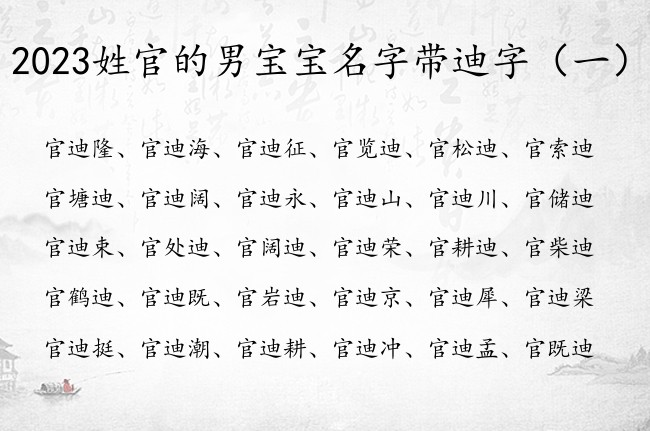 2023姓官的男宝宝名字带迪字（一）
官迪隆、官迪海、官迪征、官览迪、官松迪、官索迪
官塘迪、官迪阔、官迪永、官迪山、官迪川、官储迪
官迪束、官处迪、官阔迪、官迪荣、官耕迪、官柴迪
官鹤迪、官迪既、官岩迪、官迪京、官迪犀、官迪梁
官迪挺、官迪潮、官迪耕、官迪冲、官迪孟、官既迪